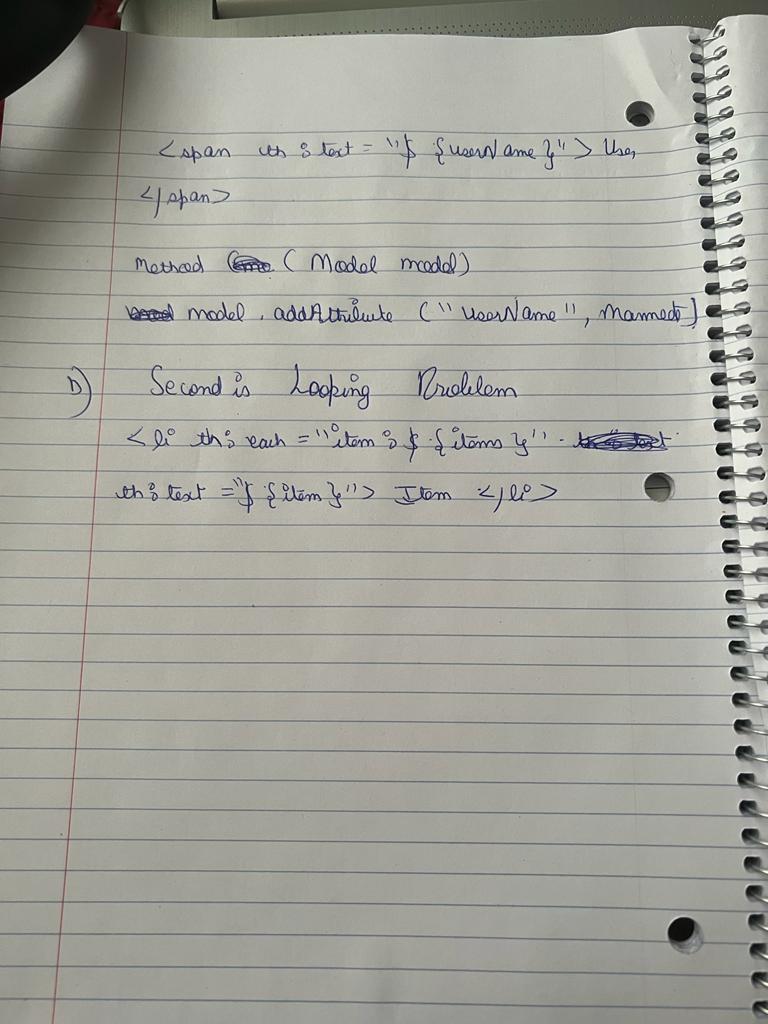 <span th:text = "${userName}"> User
</span>
Method (Model model)
model.addAttribute ("userName",
D) Second is Looping Problem
<li th:each = "item : ${items}"
th:text = "${item}"> Item </li>